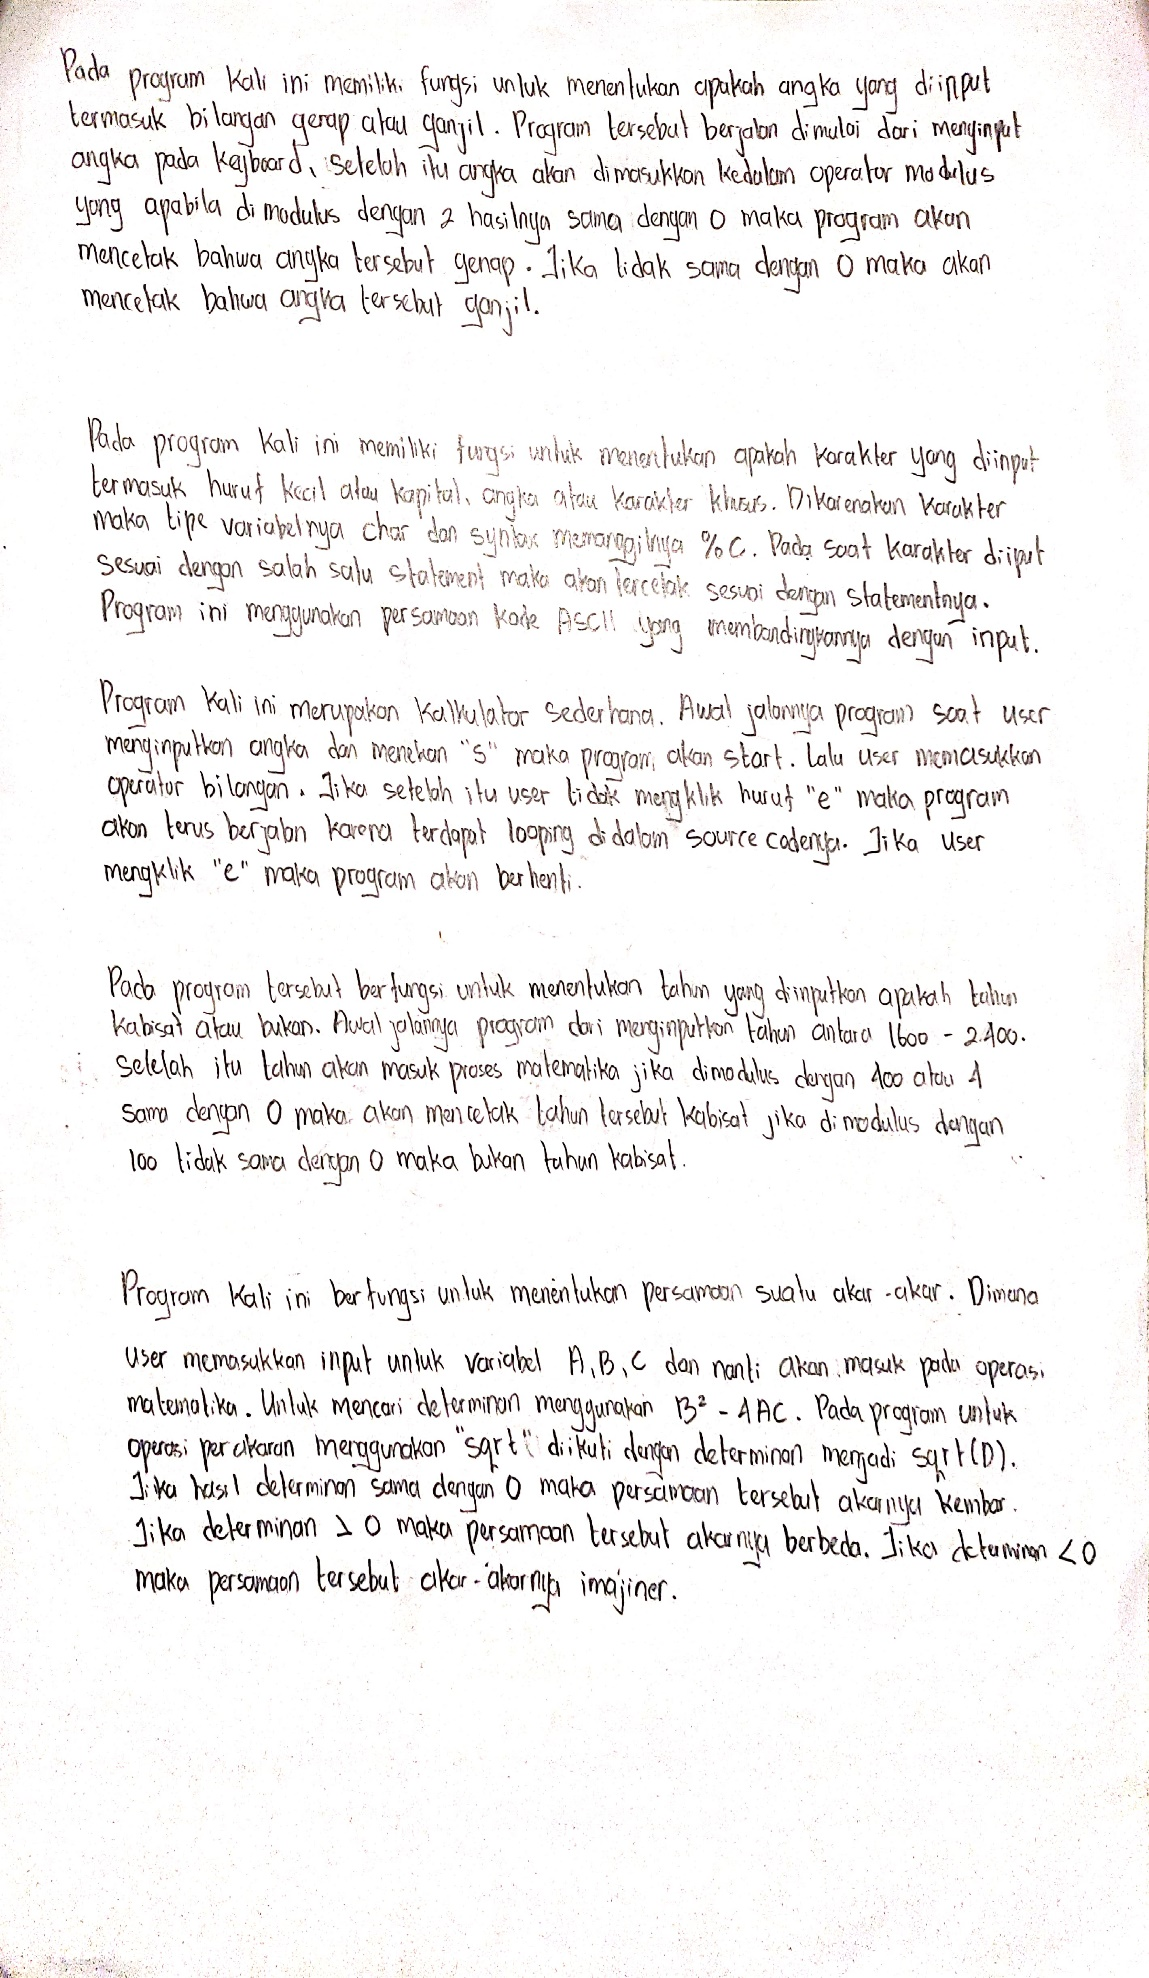 Pada program kali ini memiliki fungsi untuk menentukan apakah angka yang diinput
termasuk bilangan genap atau ganjil. Program tersebut berjalan dimulai dari menginput
angka pada keyboard, setelah itu angka akan dimasukkan kedalam operator modulus
yang apabila di modulus dengan 2 hasilnya sama dengan 0 maka program akan
mencetak bahwa angka tersebut genap. Jika tidak sama dengan 0 maka akan
mencetak bahwa angka tersebut ganjil.
Pada program kali ini memiliki fungsi untuk menentukan apakah karakter yang diinput
termasuk huruf kecil atau kapital, angka atau karakter khusus. Dikarenakan karakter
maka tipe variabelnya char dan syntax memanggilnya %C. Pada saat karakter diiput
sesuai dengan salah satu statement maka akan tercetak sesuai dengan statementnya.
Program ini menggunakan persamaan kode ASCII yang membandingkannya dengan input.
Program kali ini merupakan kalkulator sederhana. Awal jalannya program saat user
menginputkan angka dan menekan "s" maka program akan start. Lalu user memasukkan
operator bilangan. Jika setelah itu user tidak mengklik huruf "e" maka program
akan terus berjalan karena terdapat looping didalam source codenya. Jika user
mengklik "e" maka program akan berhenti.
Pada program tersebut berfungsi untuk menentukan tahun yang diinputkan apakah tahun
kabisat atau bukan. Awal jalannya program dari menginputkan tahun antara 1600 - 2400.
Setelah itu tahun akan masuk proses matematika jika dimodulus dengan 400 atau 4
sama dengan 0 maka akan mencetak tahun tersebut kabisat jika di modulus dengan
100 tidak sama dengan 0 maka bukan tahun kabisat.
Program kali ini berfungsi untuk menentukan persamaan suatu akar-akar. Dimana
user memasukkan input untuk variabel A, B, C dan nanti akan masuk pada operasi
matematika. Untuk mencari determinan menggunakan B² - 4AC. Pada program untuk
operasi perakaran menggunakan "sqrt" diikuti dengan determinan menjadi sqrt(D).
Jika hasil determinan sama dengan 0 maka persamaan tersebut akarnya kembar.
Jika determinan > 0 maka persamaan tersebut akarnya berbeda. Jika determinan < 0
maka persamaan tersebut akar-akarnya imajiner.